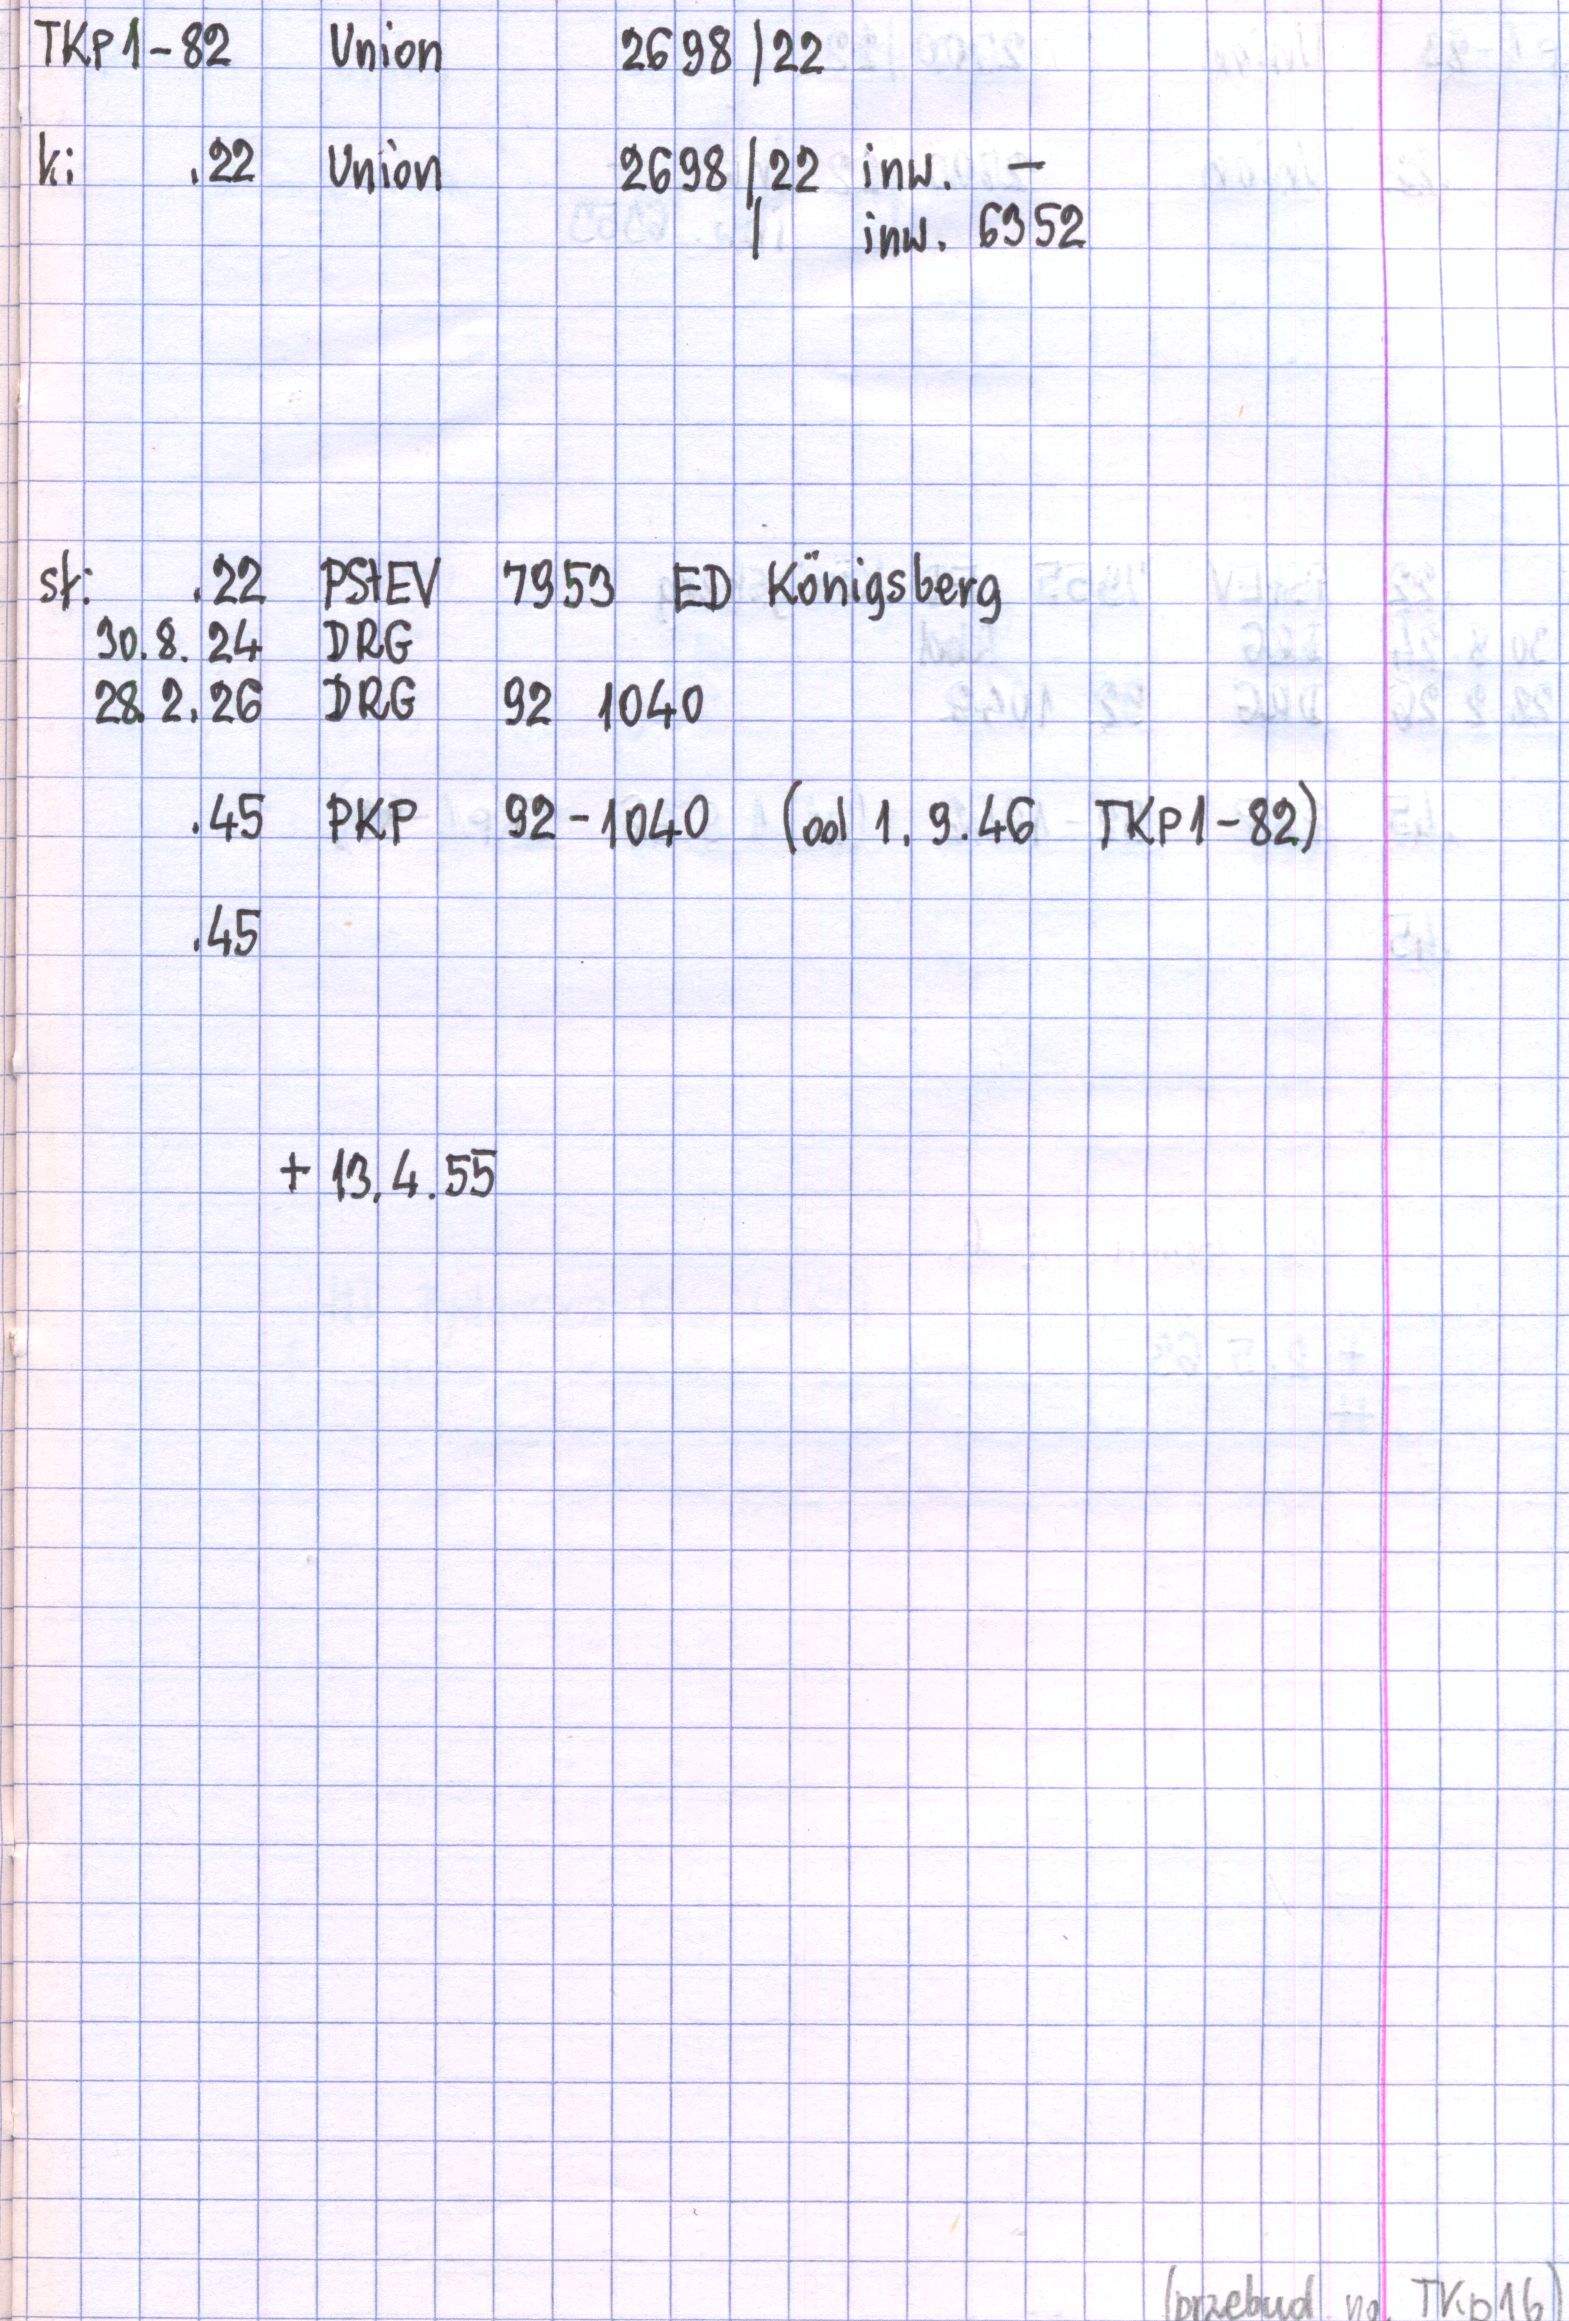 TKp1-82 Union 2698/22
ki: .22 Union 2698/22 inw. -
/ inw. 6352
st: .22 PStEV 7953 ED Königsberg
30.8.24 DRG
28.2.26 DRG 92 1040
.45 PKP 92-1040 (od 1.9.46 TKp1-82)
.45
+ 13.4.55
(przebud na TKp16)